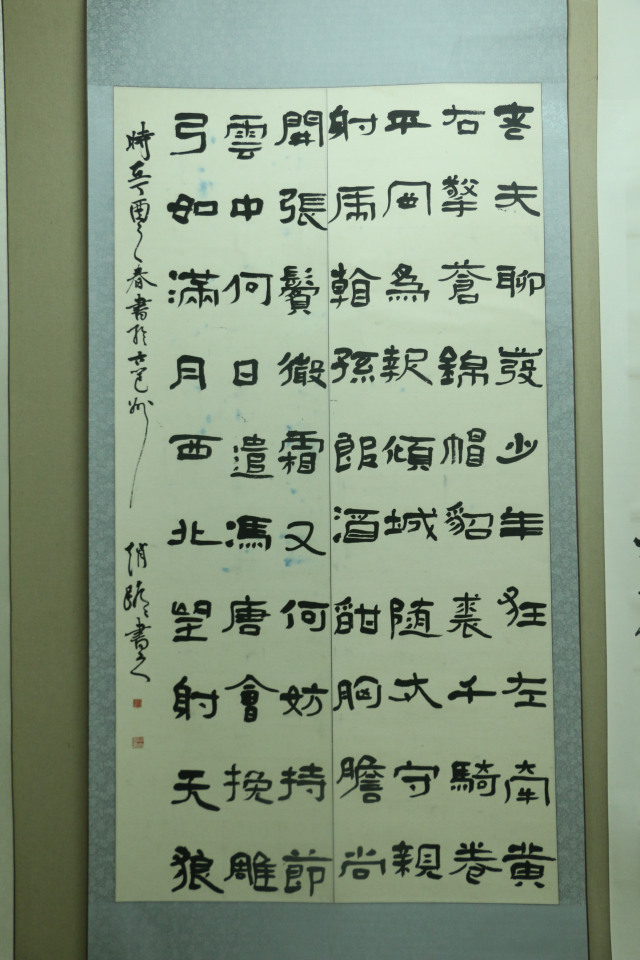 老夫聊發少年狂左牽黃
右擎蒼錦帽貂裘千騎卷
平岡為報傾城隨太守親
射虎看孫郎酒酣胸膽尚
開張鬢微霜又何妨持節
雲中何日遣馮唐會挽雕
弓如滿月西北望射天狼
時辛酉之春書於
書